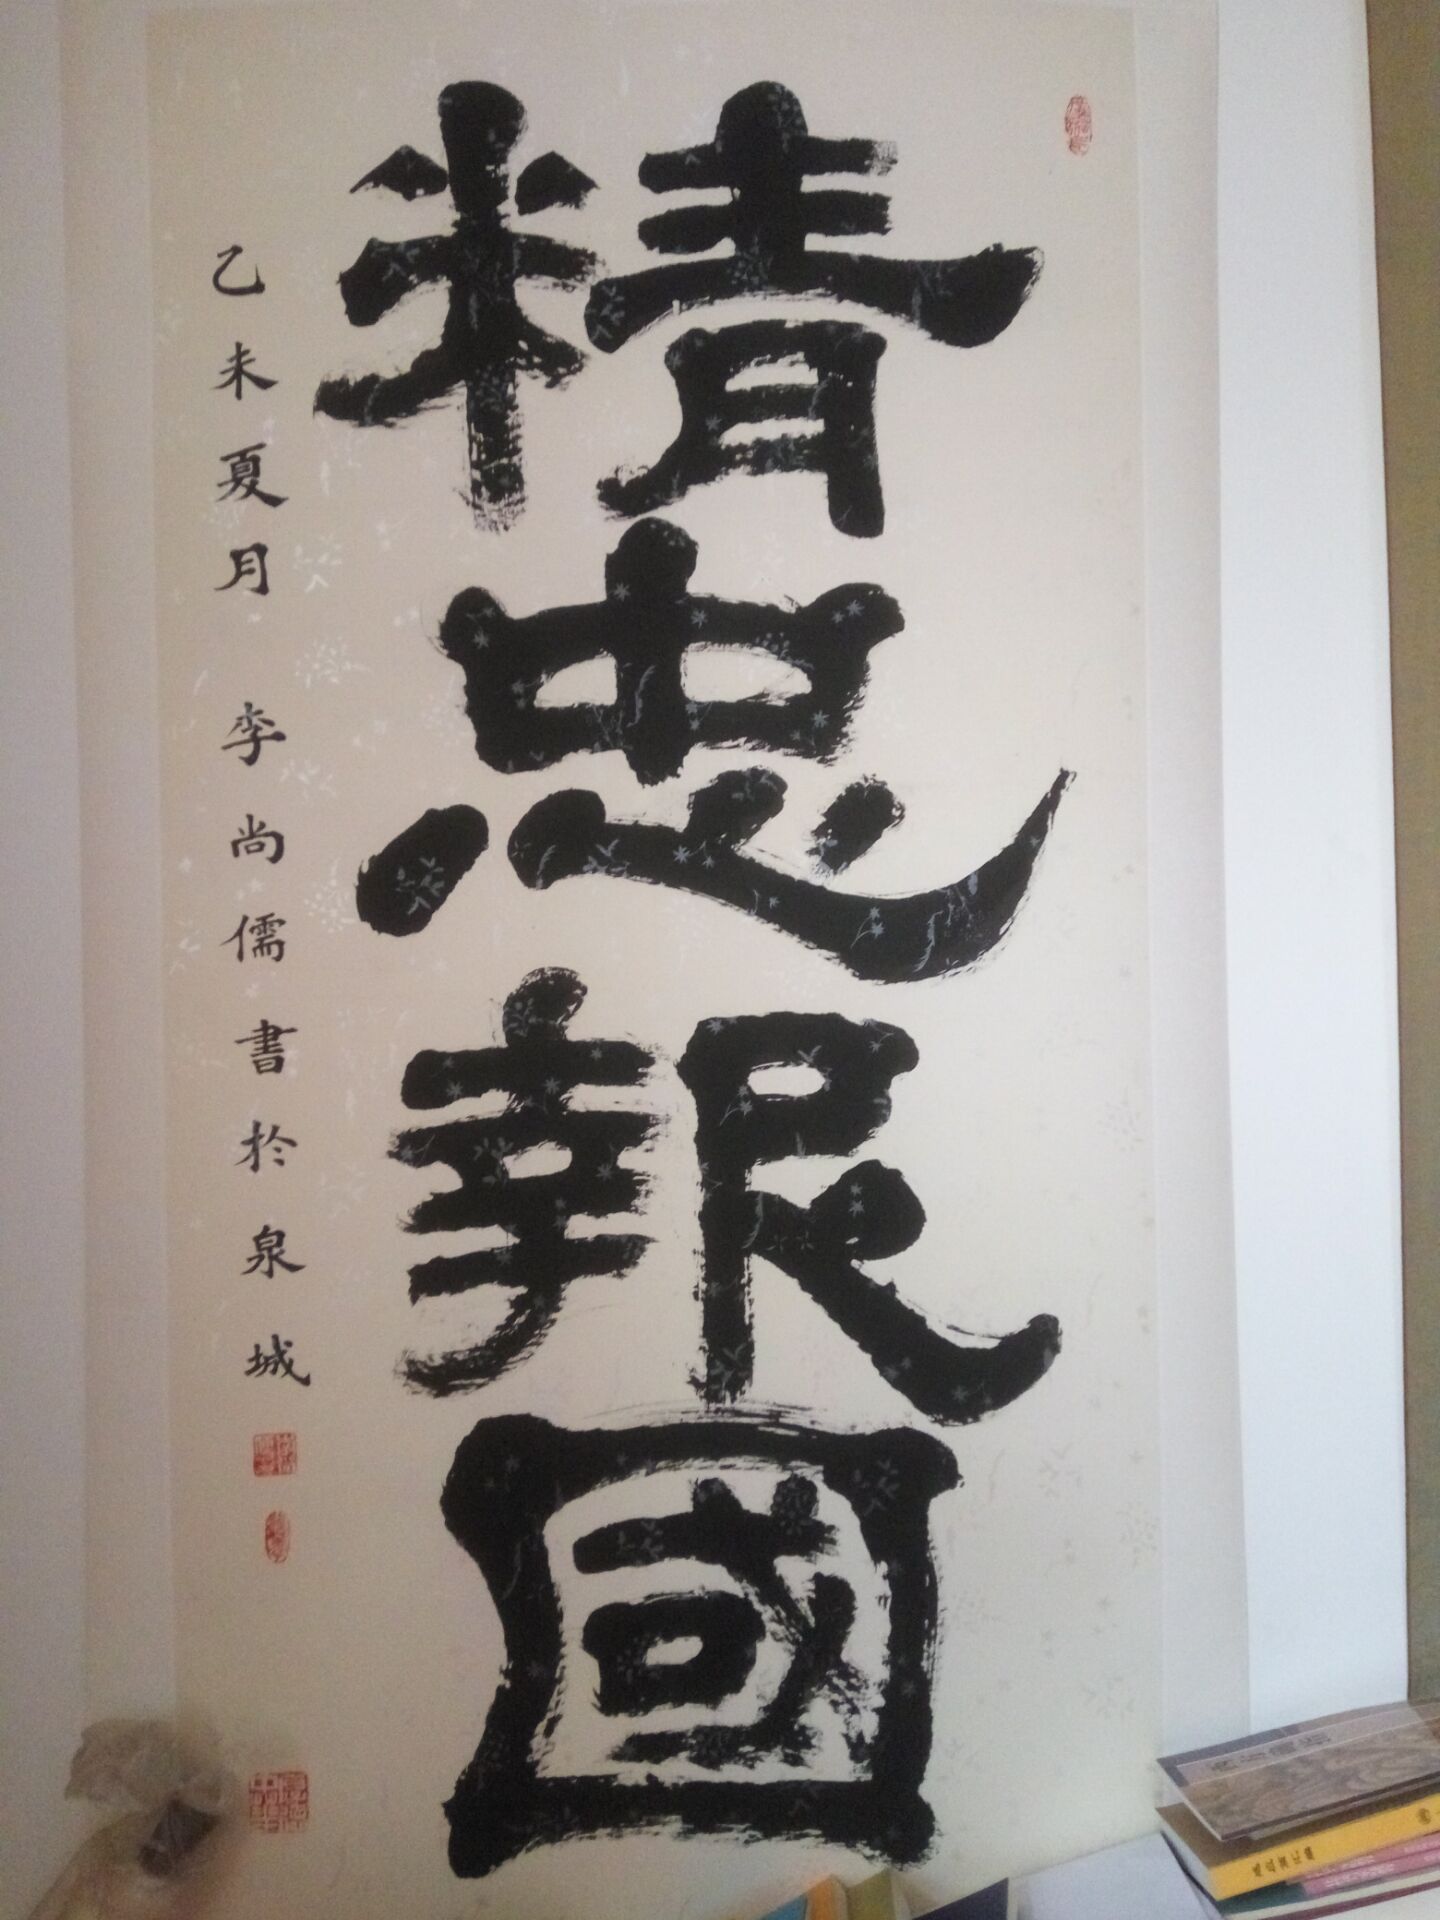 精忠報國
乙未夏月 李尚儒書於泉城